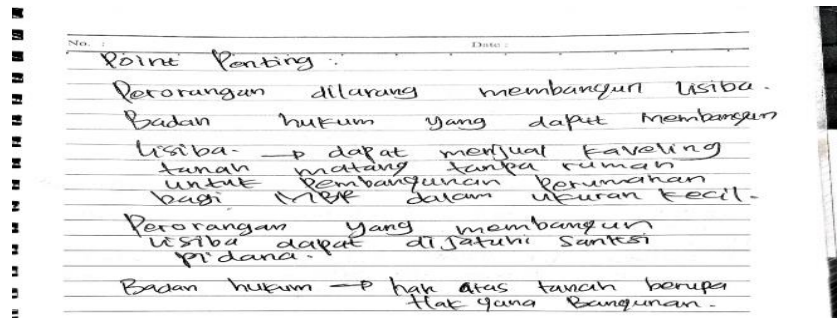 No. :
Date :
Point Penting :
Perorangan dilarang membangun Lisiba.
Badan hukum yang dapat membangun
Lisiba. → dapat menjual kaveling
tanah matang tanpa rumah
untuk pembangunan perumahan
bagi MBR dalam ukuran kecil.
Perorangan yang membangun
Lisiba dapat dijatuhi sanksi
pidana.
Badan hukum → hak atas tanah berupa
Hak guna Bangunan.